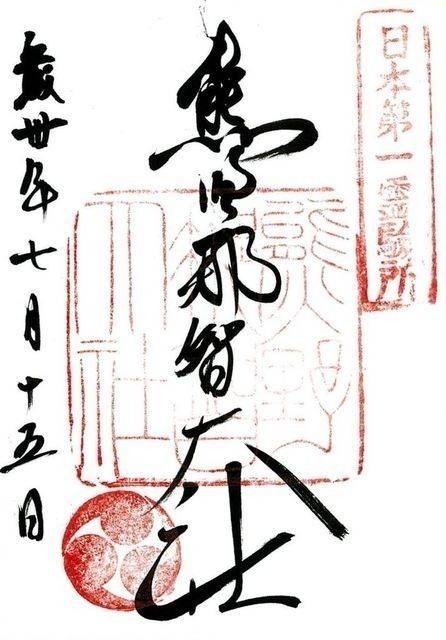 日本第一霊験所
熊野那智大社
熊野
那智
大社
平成卅年七月十五日